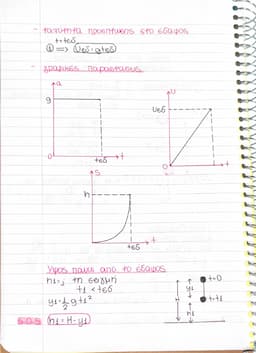 - ταχύτητα πρόσπτωσης στο έδαφος
t=tεδ
① ⟹ Uεδ=g·tεδ
- γραφικές παραστάσεις
a
g
0
tεδ
t
U
Uεδ
0
t
S
h
tεδ
t
Ύψος πάνω από το έδαφος
h1=; τη στιγμή
t1<tεδ
y1=½gt1²
h1=H-y1
t=0
y1
H
t=t1
h1